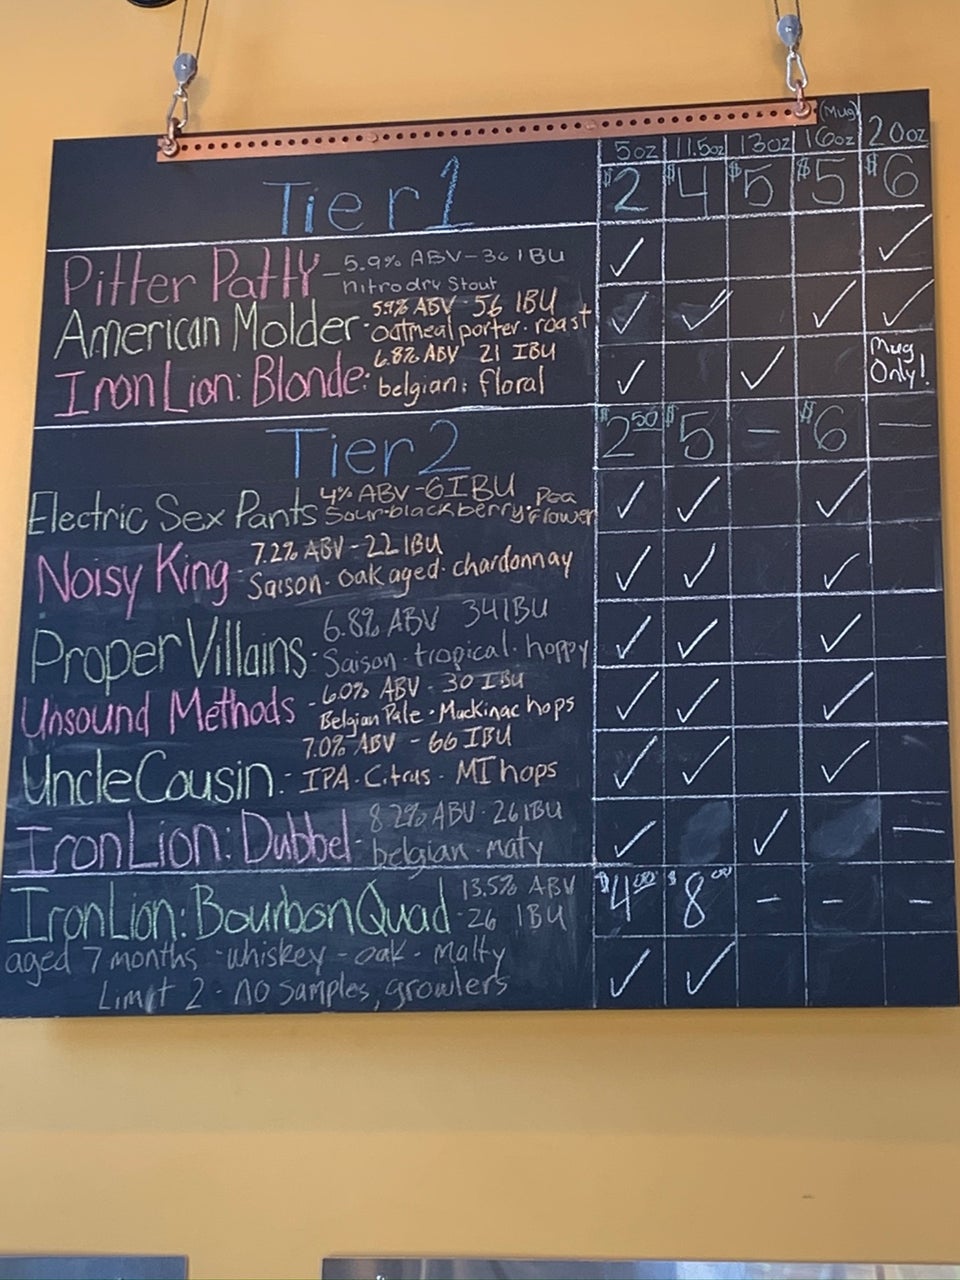 (Mug)
5oz 11.5oz 13oz 16oz 20oz
Tier 1 $2 $4 $5 $5 $6
Pitter Patty - 5.9% ABV - 36 IBU
nitro dry Stout
American Molder · 5.9% ABV · 56 IBU
oatmeal porter · roast
Iron Lion: Blonde: 6.8% ABV 21 IBU
belgian: floral
Mug
Only!
Tier 2 $2.50 $5 - $6 -
Electric Sex Pants 4% ABV - 6 IBU
Sour · blackberry · Pea
flower
Noisy King - 7.2% ABV - 22 IBU
Saison · oak aged · chardonnay
Proper Villains: 6.8% ABV 34 IBU
Saison · tropical · hoppy
Unsound Methods - 6.0% ABV - 30 IBU
Belgian Pale · Mackinac hops
Uncle Cousin: 7.0% ABV - 66 IBU
IPA · Citrus · MI hops
Iron Lion: Dubbel · 8.2% ABV · 26 IBU
belgian · malty
Iron Lion: Bourbon Quad 13.5% ABV $4.00 $8.00 - - -
· 26 IBU
aged 7 months - whiskey - oak · malty
Limit 2 - no samples, growlers